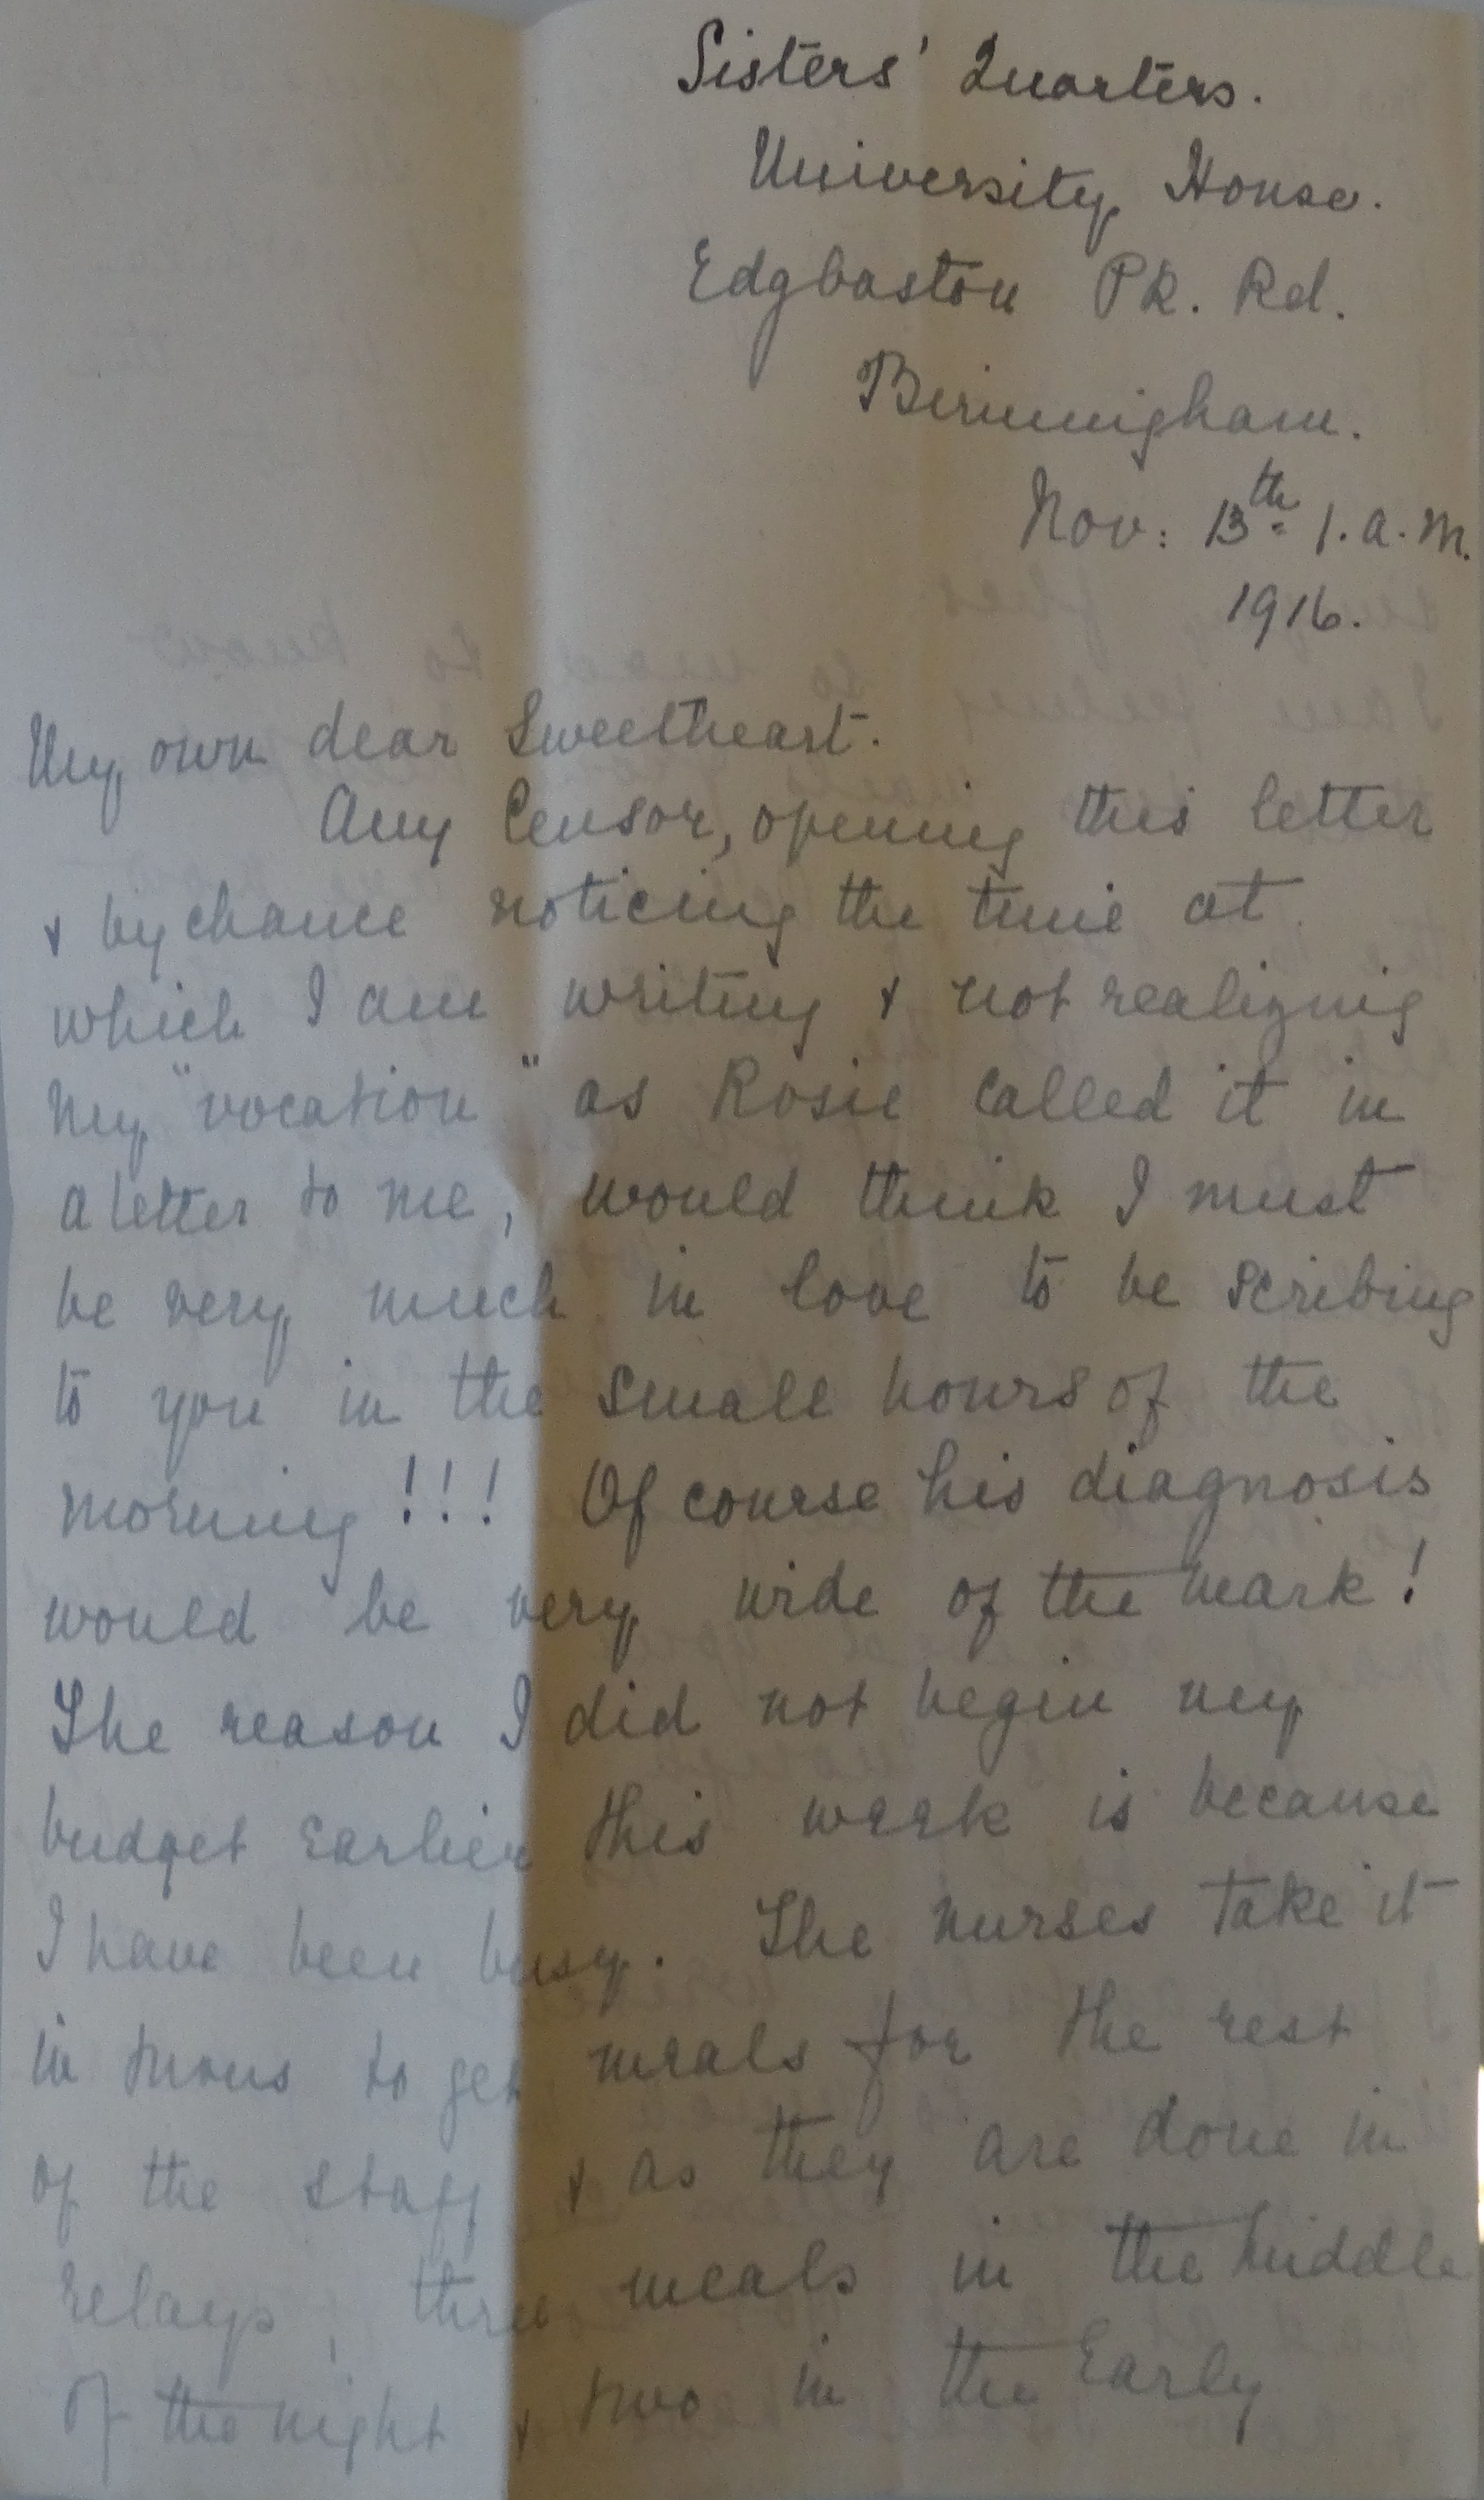 Sisters' Quarters.
University House.
Edgbaston Pk. Rd.
Birmingham.
Nov: 13th 1. a. m.
1916.
My own dear Sweetheart.
Any Censor, opening this letter
& by chance noticing the time at
which I am writing & not realizing
my "vocation" as Rosie called it in
a letter to me, would think I must
be very much in love to be scribing
to you in the small hours of the
morning!!! Of course his diagnosis
would be very wide of the mark!
The reason I did not begin my
budget earlier this week is because
I have been busy. The nurses take it
in turns to get meals for the rest
of the staff & as they are done in
relays, three meals in the middle
of the night & two in the early